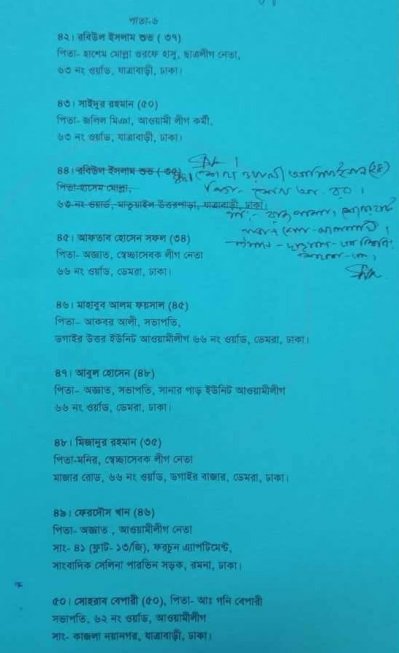 পাতা-৬
৪২। রবিউল ইসলাম শুভ ( ৩৭)
পিতা- হাশেম মোল্লা ওরফে হাসু, ছাত্রলীগ নেতা,
৬৩ নং ওয়ার্ড, যাত্রাবাড়ী, ঢাকা।
৪৩। সাইদুর রহমান (৫০)
পিতা- জলিল মিঞা, আওয়ামী লীগ কর্মী,
৬৩ নং ওয়ার্ড, যাত্রাবাড়ী, ঢাকা।
৪৪। রবিউল ইসলাম শুভ (৩৫)
পিতা-হাসেম মোল্লা,
৬৫ নং ওয়ার্ড, মাতুয়াইল উত্তরপাড়া, যাত্রাবাড়ী, ঢাকা।
৪৫। আফতাব হোসেন সফল (৩৪)
পিতা- অজ্ঞাত, স্বেচ্ছাসেবক লীগ নেতা
৬৬ নং ওয়ার্ড, ডেমরা, ঢাকা।
৪৬। মাহাবুব আলম ফয়সাল (৪৫)
পিতা- আকবর আলী, সভাপতি,
ডগাইর উত্তর ইউনিট আওয়ামীলীগ ৬৬ নং ওয়ার্ড, ডেমরা, ঢাকা।
৪৭। আবুল হোসেন (৪৮)
পিতা- অজ্ঞাত, সভাপতি, সানার পাড় ইউনিট আওয়ামীলীগ
৬৬ নং ওয়ার্ড, ডেমরা, ঢাকা।
৪৮। মিজানুর রহমান (৩৫)
পিতা-মনির, স্বেচ্ছাসেবক লীগ নেতা
মাজার রোড, ৬৬ নং ওয়ার্ড, ডগাইর বাজার, ডেমরা, ঢাকা।
৪৯। ফেরদৌস খান (৪৬)
পিতা- অজ্ঞাত , আওয়ামীলীগ নেতা
সাং- ৪১ (ফ্লাট- ১৩/জি), ফরচুন এ্যাপার্টমেন্ট,
সাংবাদিক সেলিনা পারভিন সড়ক, রমনা, ঢাকা।
৫০। সোহরাব বেপারী (৫০), পিতা- আঃ গনি বেপারী
সভাপতি, ৬২ নং ওয়ার্ড, আওয়ামীলীগ
সাং- কাজলা নয়ানগর, যাত্রাবাড়ী, ঢাকা।